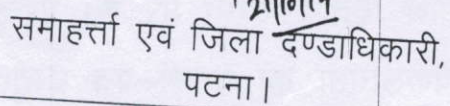 समाहर्त्ता एवं जिला दण्डाधिकारी,
पटना।